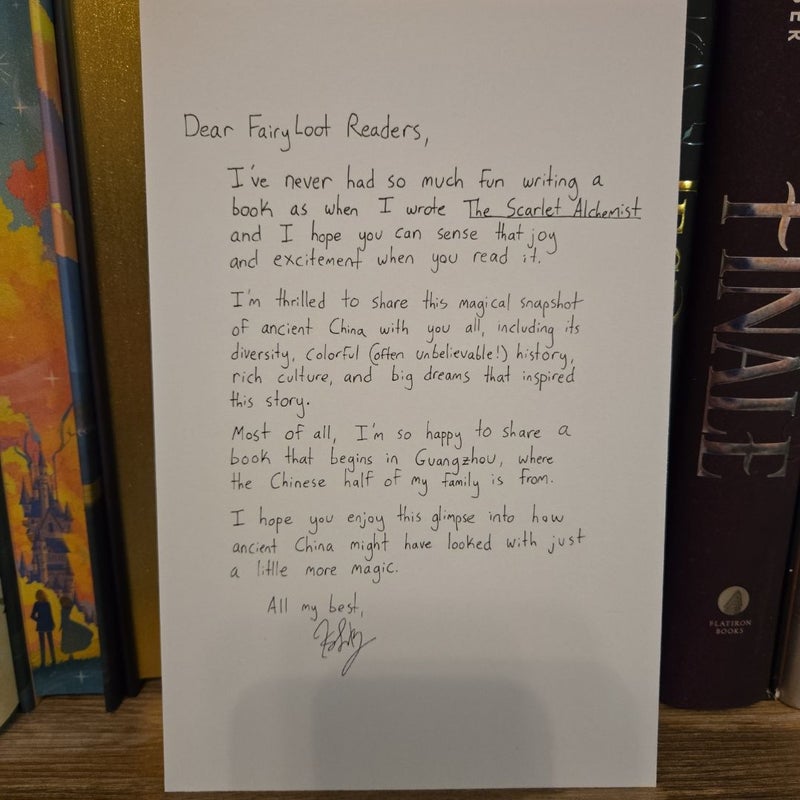 Dear FairyLoot Readers,
I've never had so much fun writing a
book as when I wrote The Scarlet Alchemist
and I hope you can sense that joy
and excitement when you read it.
I'm thrilled to share this magical snapshot
of ancient China with you all, including its
diversity, colorful (often unbelievable!) history,
rich culture, and big dreams that inspired
this story.
Most of all, I'm so happy to share a
book that begins in Guangzhou, where
the Chinese half of my family is from.
I hope you enjoy this glimpse into how
ancient China might have looked with just
a little more magic.
All my best,
FINALE
FLATIRON
BOOKS